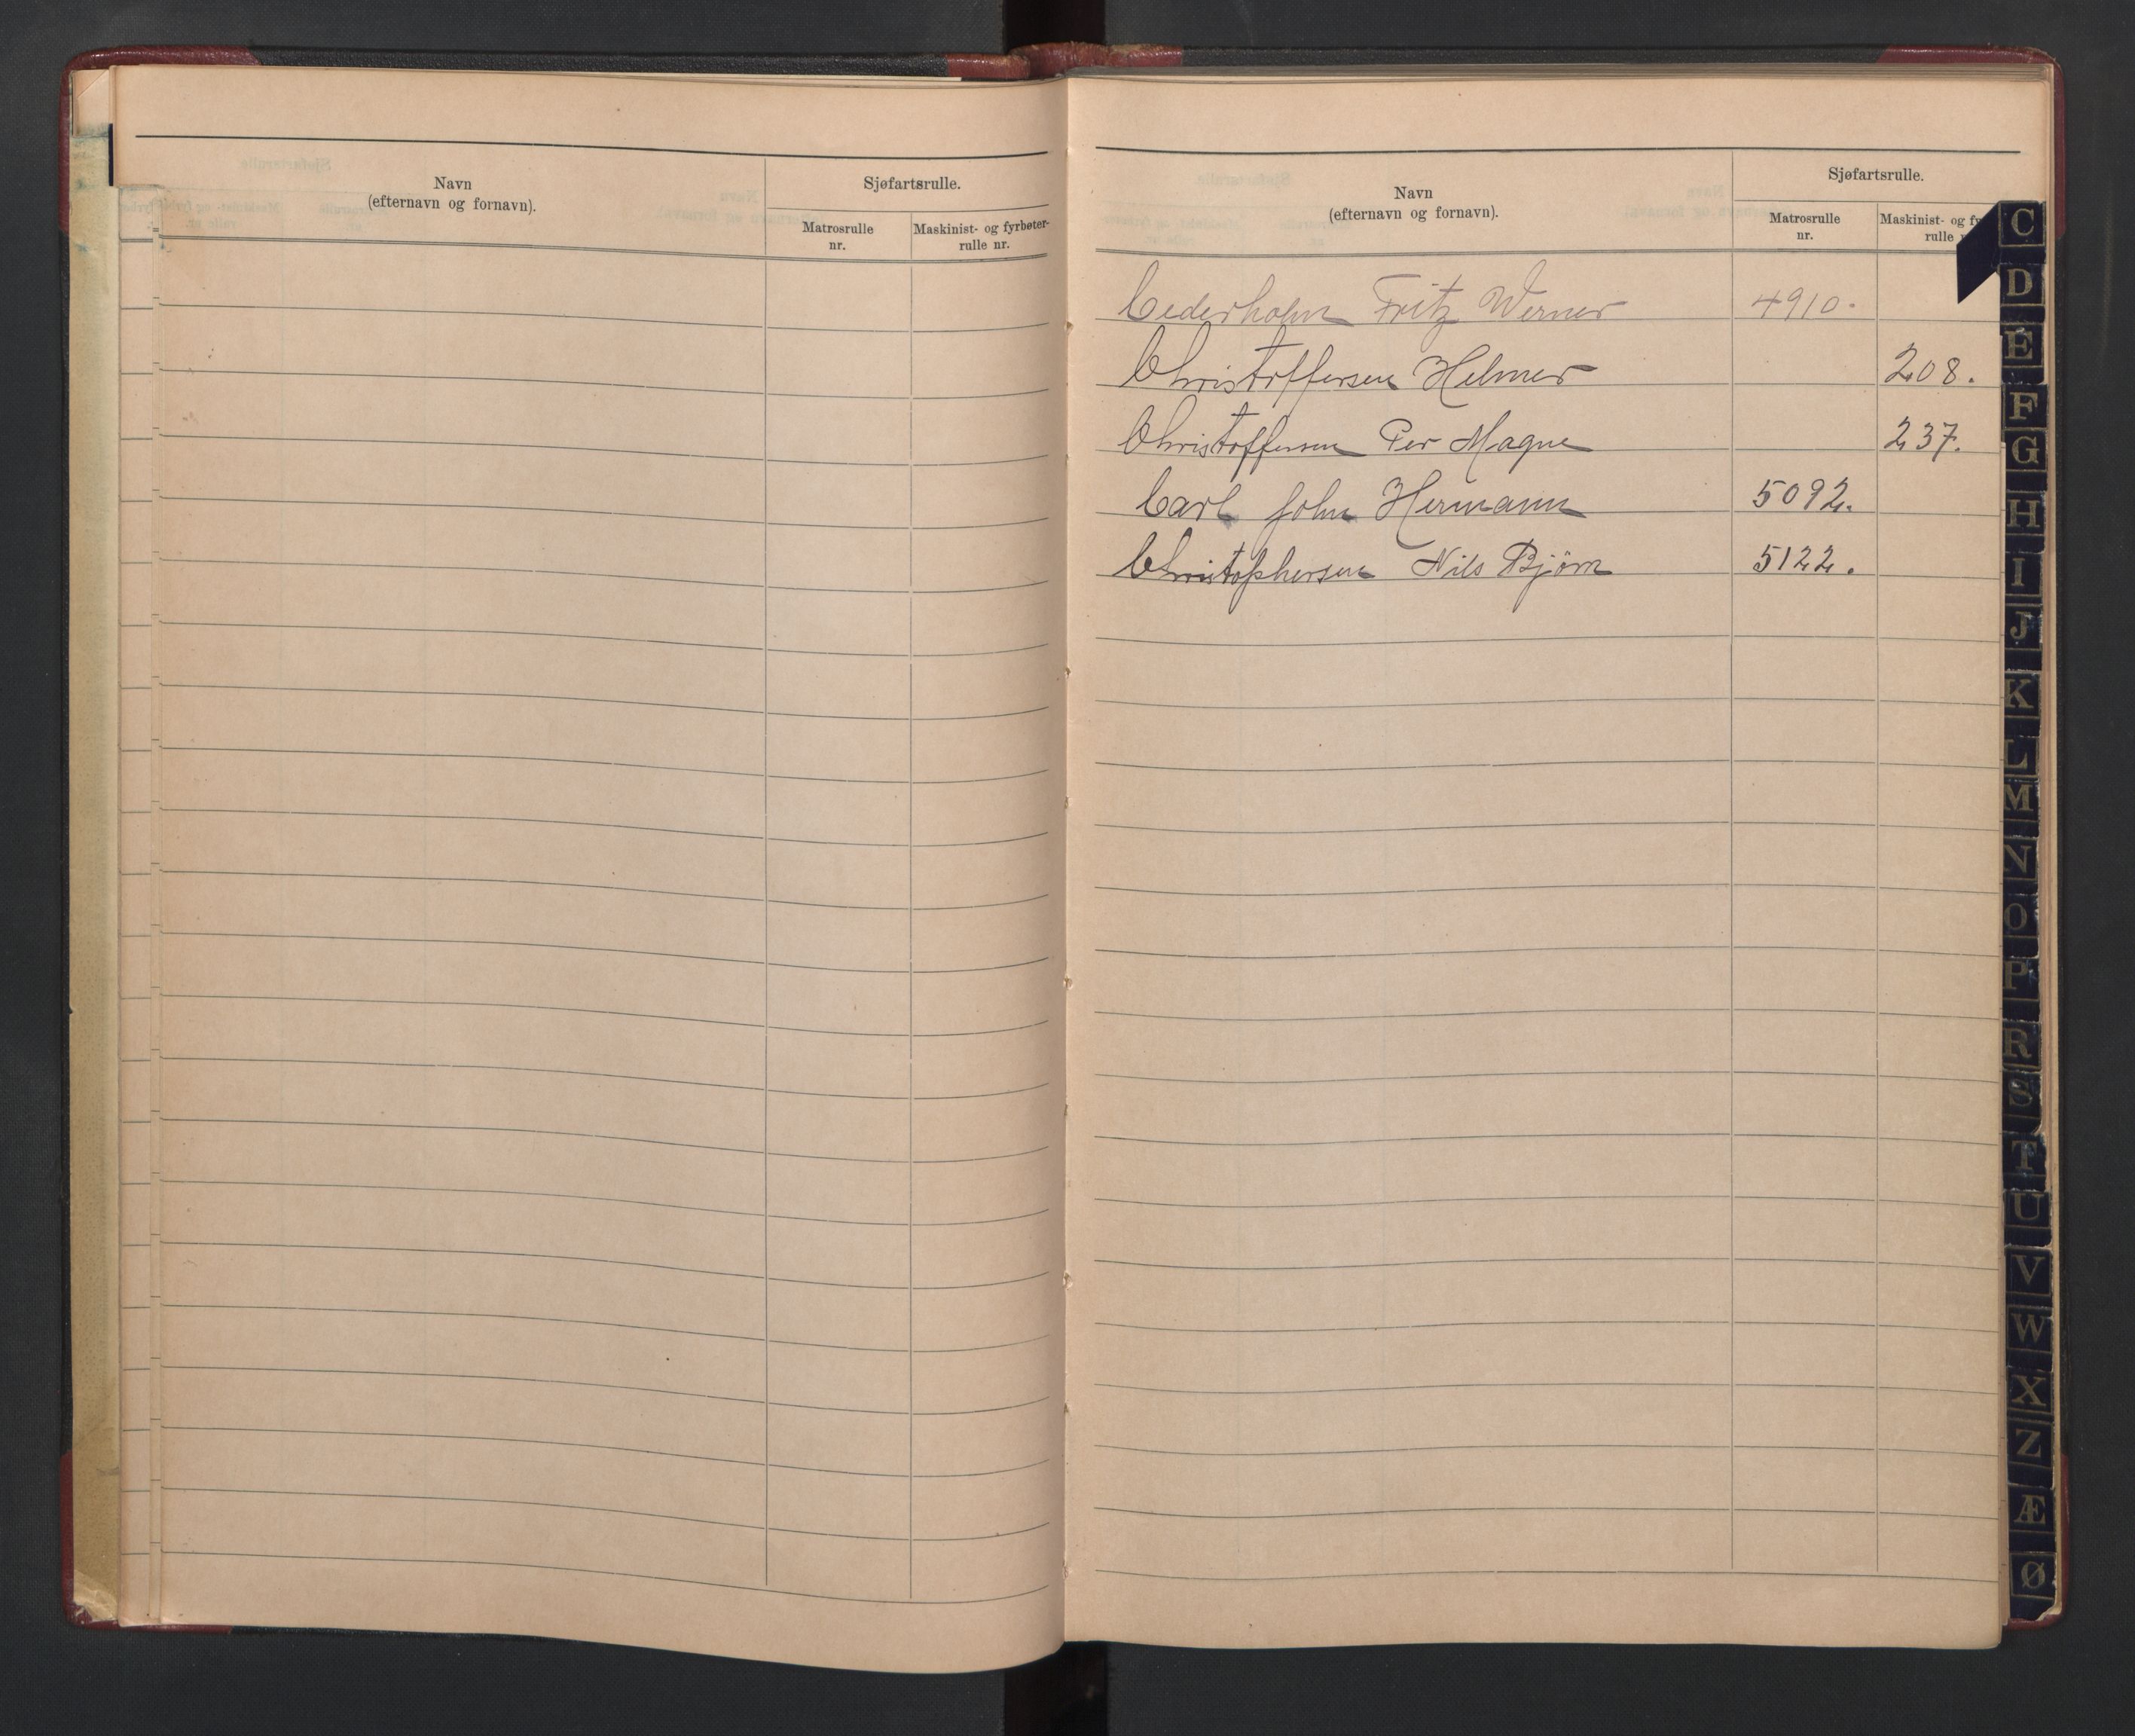 Navn
(efternavn og fornavn).
Sjøfartsrulle.
Matrosrulle
nr.
Maskinist- og fyrbøter-
rulle nr.
Navn
(efternavn og fornavn).
Sjøfartsrulle.
Matrosrulle
nr.
Maskinist- og fy
rulle
Cederholm Fritz Werner 4910.
Christoffersen Helmer 208.
Christoffersen Per Magne 237.
Carl John Hermann 5092.
Christophersen Nils Bjørn 5122.
C
D
E
F
G
H
I
J
K
L
M
N
O
P
R
S
T
U
V
W
X
Z
Æ
Ø